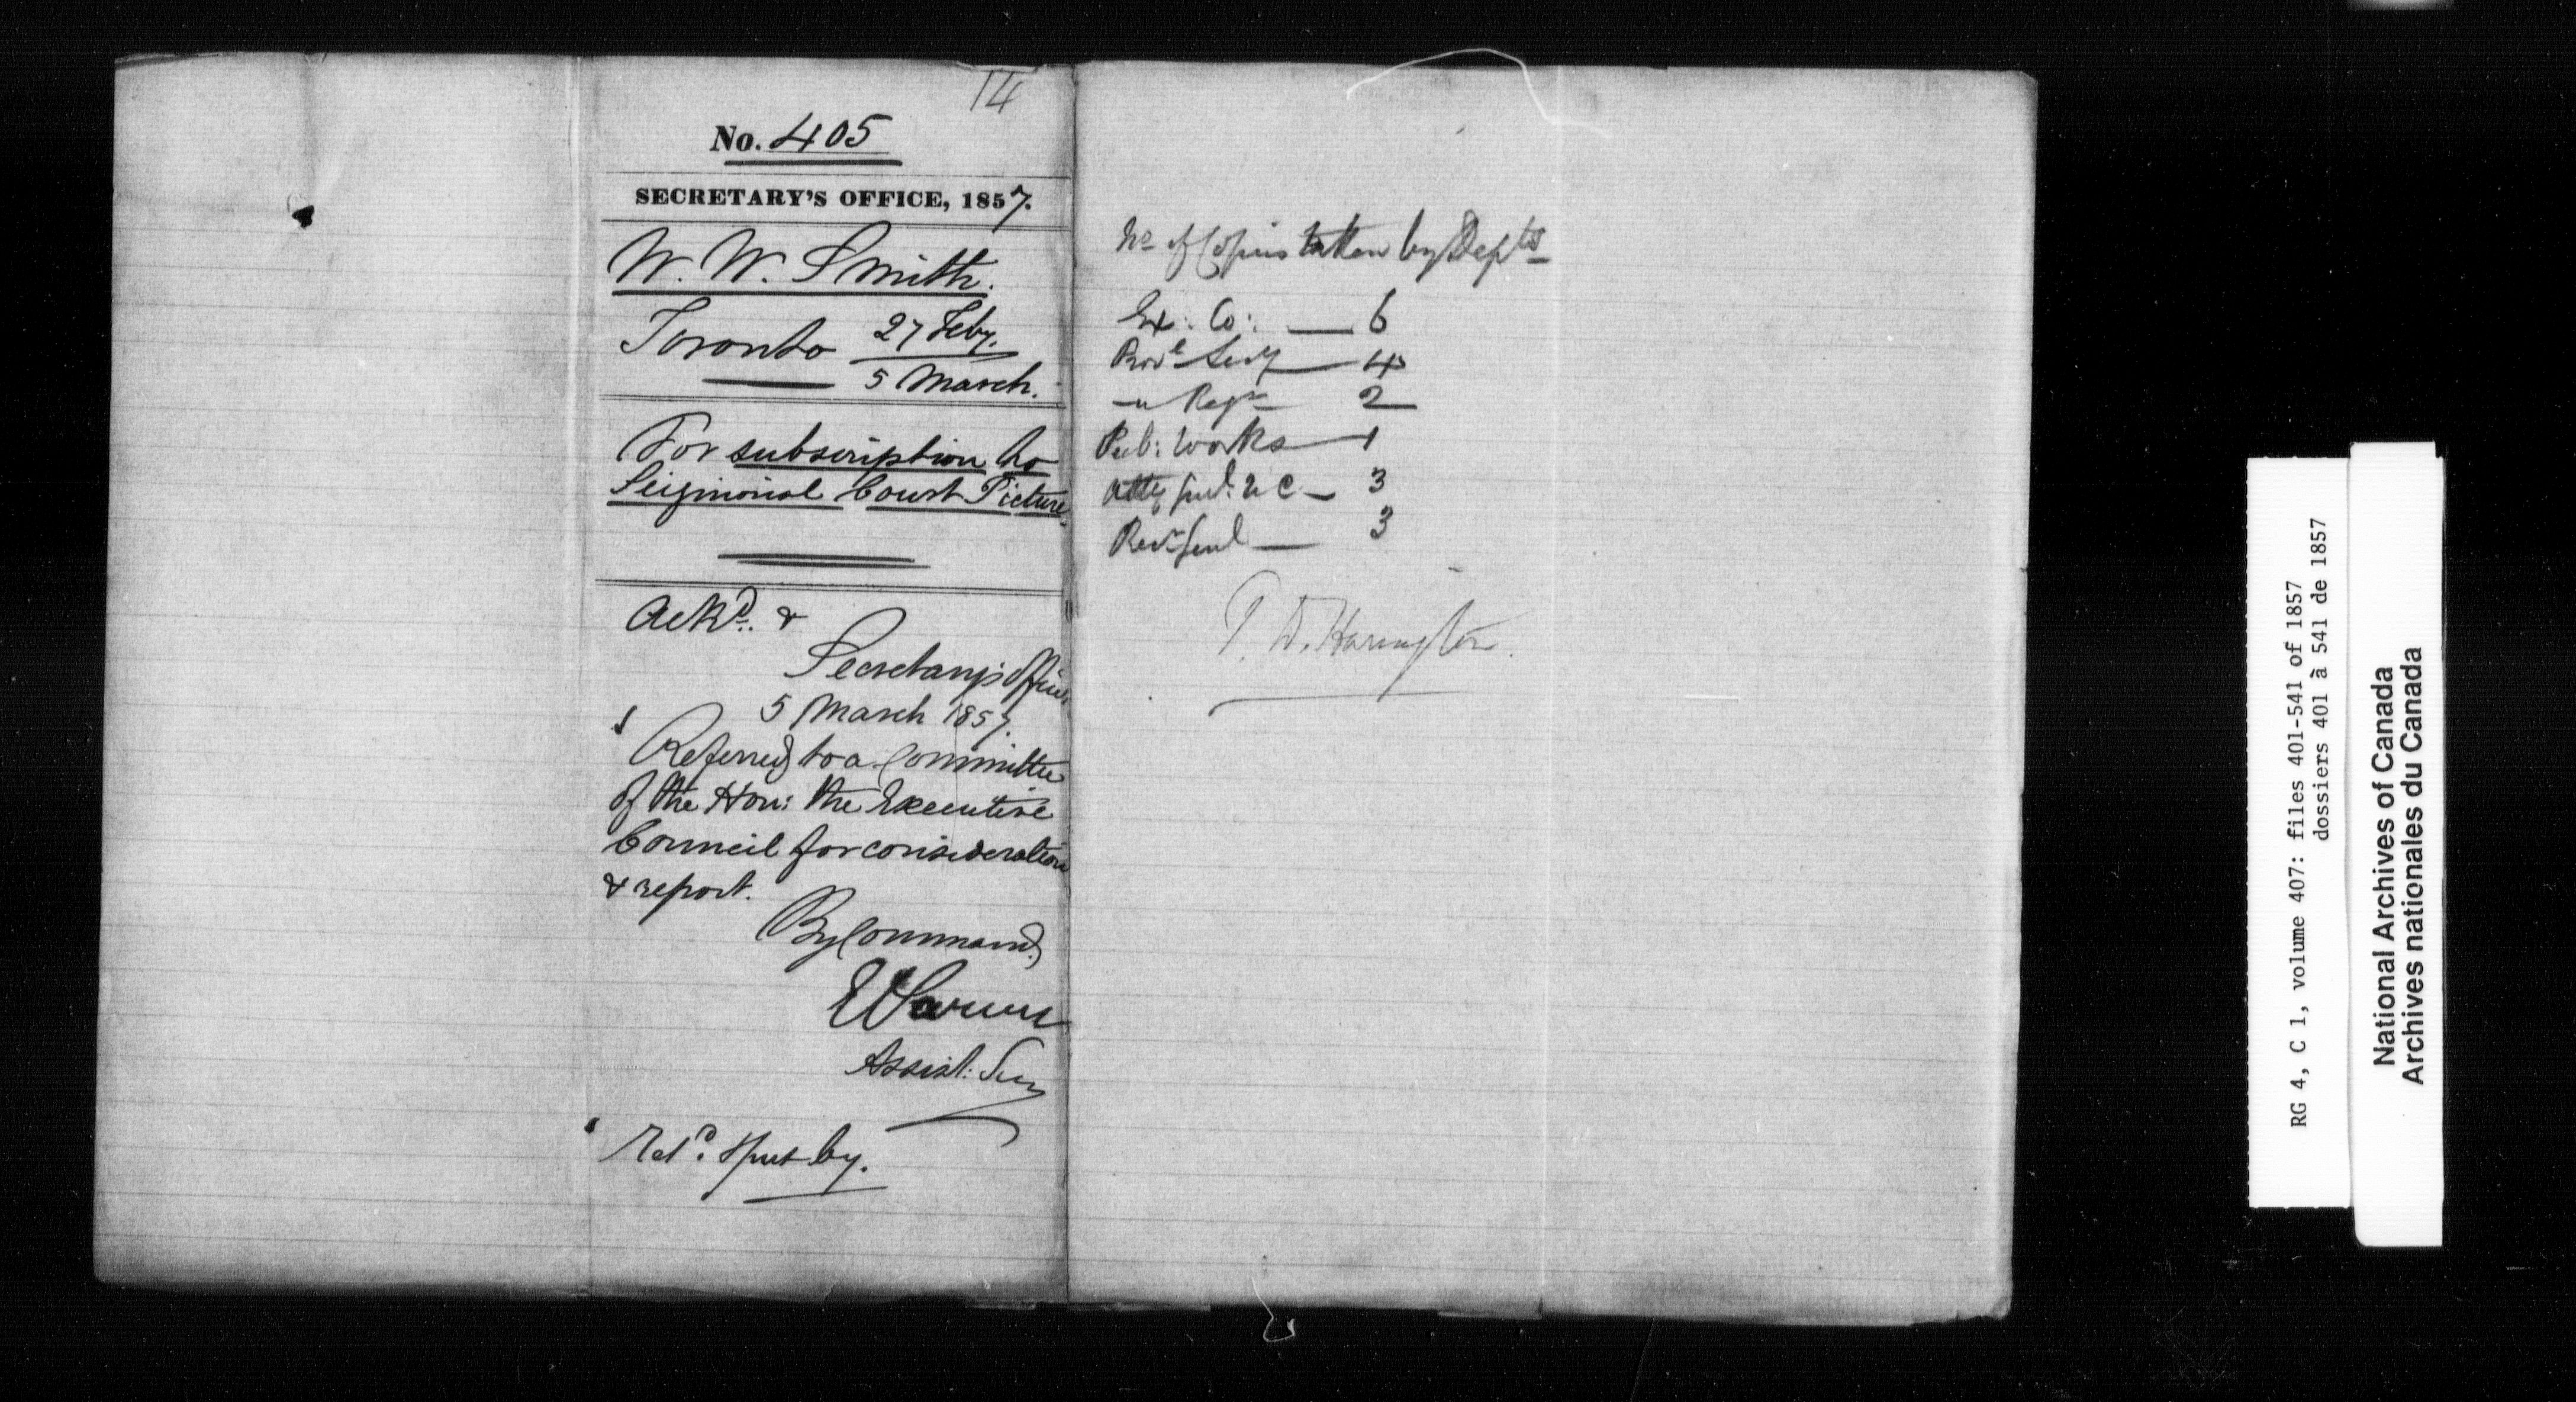 14
No. 405
SECRETARY'S OFFICE, 1857.
W. W. Smith.
Toronto 27 Feby.
5 March.
For subscription to
Seigniorial Court Picture
Ackd. &
Secretary's Office
5 March 1857.
Referred to a Committee
of the Hon: the Executive
Council for consideration
& report.
By Command,
Assist: Secy
Retd. & put by.
No of Copies taken by Depts
Ex: Co: — 6
Provl Secy — 4
—"— Regr — 2
Pub: Works — 1
Atty Genl: U C — 3
Recr Genl — 3
T. D. Harington.
RG 4, C 1, volume 407: files 401-541 of 1857
dossiers 401 à 541 de 1857
National Archives of Canada
Archives nationales du Canada